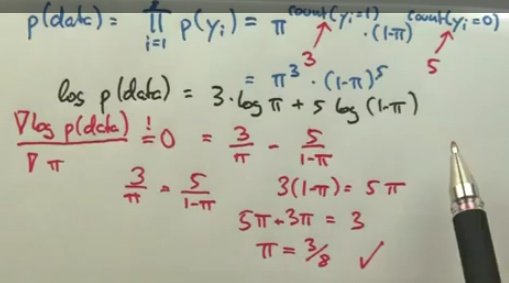 p(data) = ∏_{i=1}^{8} p(y_i) = π^{count(y_i=1)} · (1-π)^{count(y_i=0)}
3 5
= π^3 · (1-π)^5
log p(data) = 3 · log π + 5 log (1-π)
∇ log p(data) / ∇ π =! 0 = 3/π - 5/(1-π)
3/π = 5/(1-π) 3(1-π) = 5π
5π+3π = 3
π = 3/8 ✓